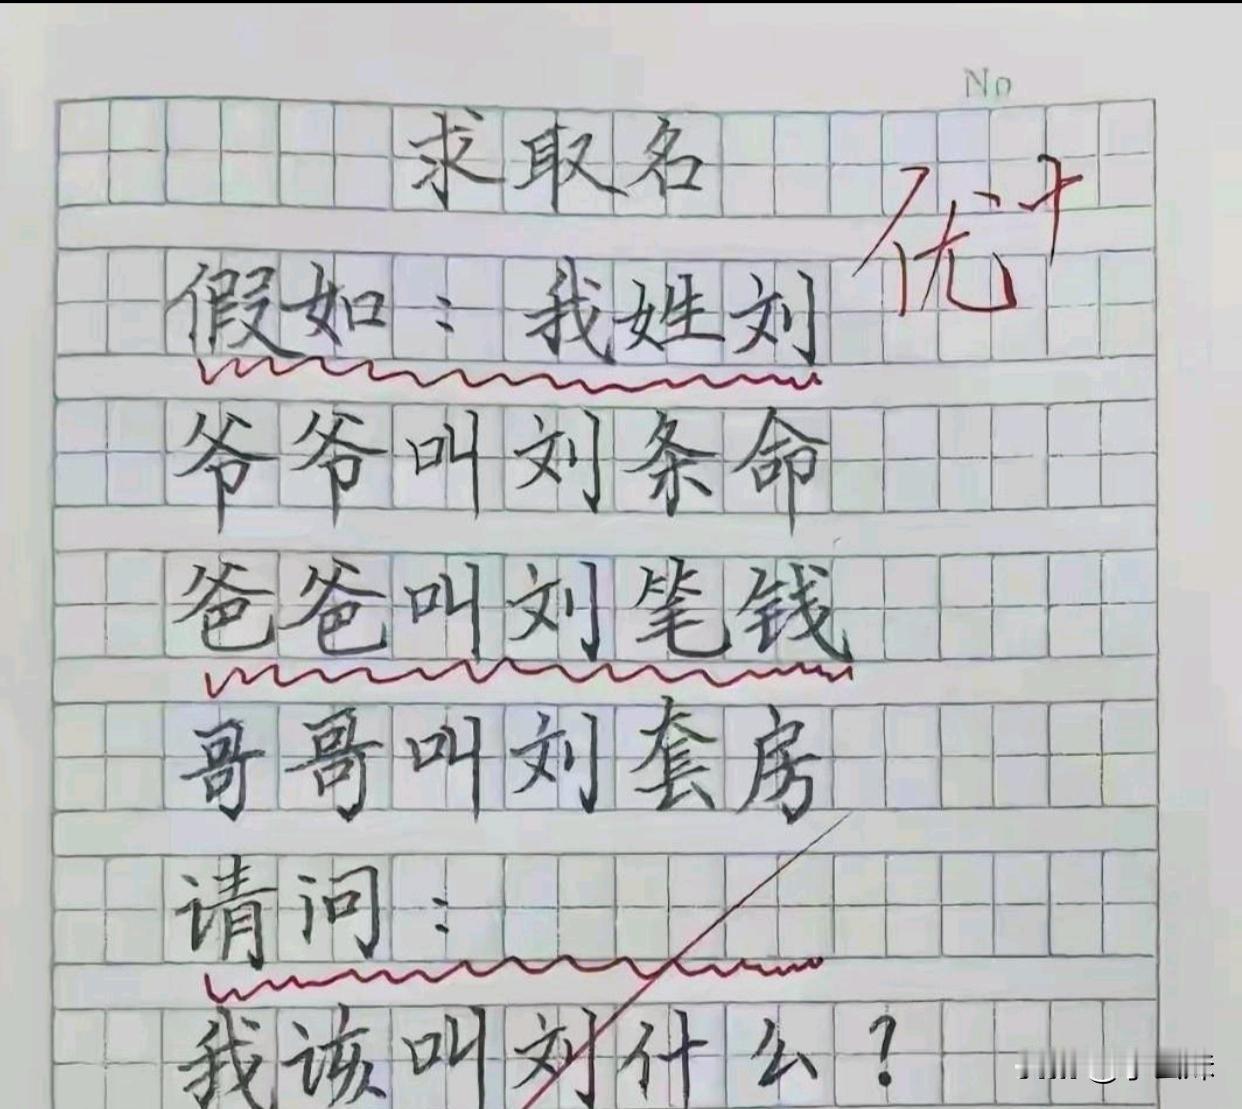 No
求取名
优+
假如：我姓刘
爷爷叫刘条命
爸爸叫刘笔钱
哥哥叫刘套房
请问：
我该叫刘什么？